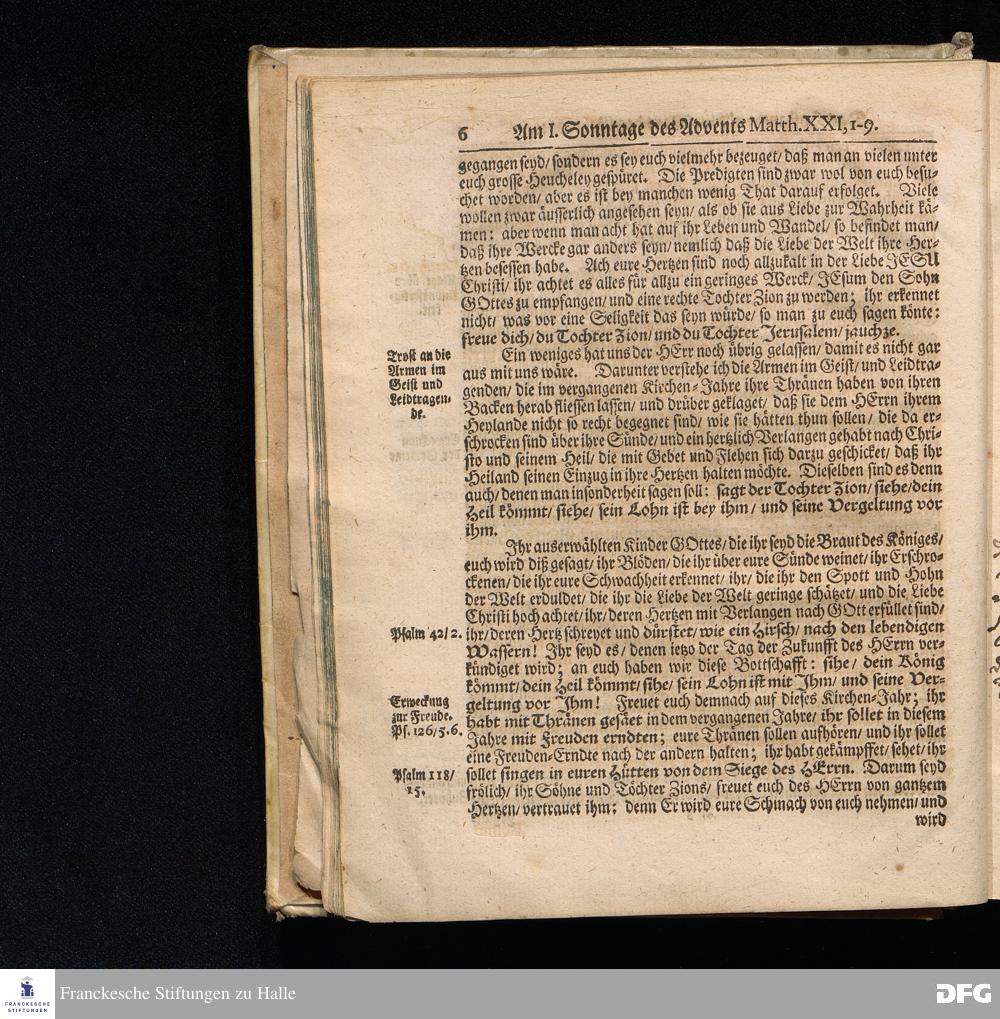 6 Am I. Sonntage des Advents Matth. XXI, 1-9.
gegangen seyd/ sondern es sey euch vielmehr bezeuget/ daß man an vielen unter
euch grosse Heucheley gespüret. Die Predigten sind zwar wol von euch besu-
chet worden/ aber es ist bey manchen wenig That darauf erfolget. Viele
wollen zwar äusserlich angesehen seyn/ als ob sie aus Liebe zur Wahrheit kä-
men: aber wenn man acht hat auf ihr Leben und Wandel/ so befindet man/
daß ihre Wercke gar anders seyn/ nemlich daß die Liebe der Welt ihre Her-
tzen besessen habe. Ach eure Hertzen sind noch allzukalt in der Liebe JESU
Christi/ ihr achtet es alles für allzu ein geringes Werck/ JEsum den Sohn
GOttes zu empfangen/ und eine rechte Tochter Zion zu werden; ihr erkennet
nicht/ was vor eine Seligkeit das seyn würde/ so man zu euch sagen könte:
freue dich/ du Tochter Zion/ und du Tochter Jerusalem/ jauchze.
Trost an die
Armen im
Geist und
Leidtragen-
de.
Ein weniges hat uns der HErr noch übrig gelassen/ damit es nicht gar
aus mit uns wäre. Darunter verstehe ich die Armen im Geist/ und Leidtra-
genden/ die im vergangenen Kirchen-Jahre ihre Thränen haben von ihren
Backen herab fliessen lassen/ und drüber geklaget/ daß sie dem HErrn ihrem
Heylande nicht so recht begegnet sind/ wie sie hätten thun sollen/ die da er-
schrocken sind über ihre Sünde/ und ein hertzlich Verlangen gehabt nach Chri-
sto und seinem Heil/ die mit Gebet und Flehen sich darzu geschicket/ daß ihr
Heiland seinen Einzug in ihre Hertzen halten möchte. Dieselben sind es denn
auch/ denen man insonderheit sagen soll: sagt der Tochter Zion/ siehe/ dein
Heil kömmt/ siehe/ sein Lohn ist bey ihm/ und seine Vergeltung vor
ihm.
Ihr auserwählten Kinder GOttes/ die ihr seyd die Braut des Königes/
euch wird diß gesagt/ ihr Blöden/ die ihr über eure Sünde weinet/ ihr Erschro-
ckenen/ die ihr eure Schwachheit erkennet/ ihr/ die ihr den Spott und Hohn
der Welt erduldet/ die ihr die Liebe der Welt geringe schätzet/ und die Liebe
Christi hoch achtet/ ihr/ deren Hertzen mit Verlangen nach GOtt erfüllet sind/
Psalm 42/2.
ihr/ deren Hertz schreyet und dürstet/ wie ein Hirsch/ nach den lebendigen
Wassern! Ihr seyd es/ denen ietzo der Tag der Zukunfft des HErrn ver-
kündiget wird; an euch haben wir diese Bottschafft: sihe/ dein König
kömmt/ dein Heil kömmt/ sihe/ sein Lohn ist mit Ihm/ und seine Ver-
Erweckung
zur Freude.
Ps. 126/5.6.
geltung vor Ihm! Freuet euch demnach auf dieses Kirchen-Jahr; ihr
habt mit Thränen gesäet in dem vergangenen Jahre/ ihr sollet in diesem
Jahre mit Freuden erndten; eure Thränen sollen aufhören/ und ihr sollt
eine Freuden-Erndte nach der andern halten; ihr habt gekämpffet/ sehet/ ihr
Psalm 118/
15.
sollet singen in euren Hütten von dem Siege des HErrn. Darum seyd
frölich/ ihr Söhne und Töchter Zions/ freuet euch des HErrn von gantzem
Hertzen/ vertrauet ihm; denn Er wird eure Schmach von euch nehmen/ und
wird
FRANCKESCHE
STIFTUNGEN
Franckesche Stiftungen zu Halle
DFG